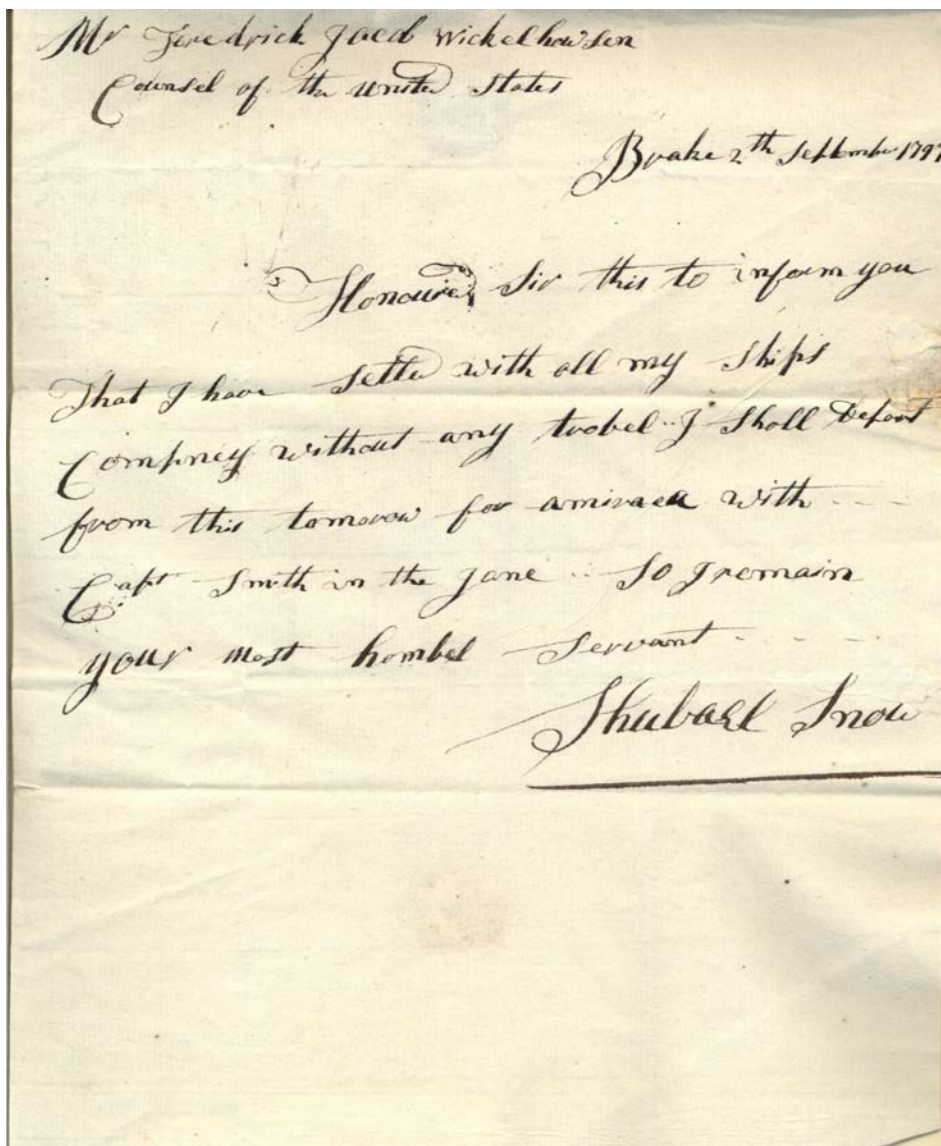 Mr Feredrick Jacob Wickelhowsen
Counsel of the United States
Brake 2th September 1797
Honoured Sir this to inform you
That I have Setted with all my Ships
Compney without any trobel.. I Shall Depart
from this tomorow for amiraca with - - -
Capt Smith in the Jane .. So I remain
your most hombel Servant - - - -
Shubael Snow